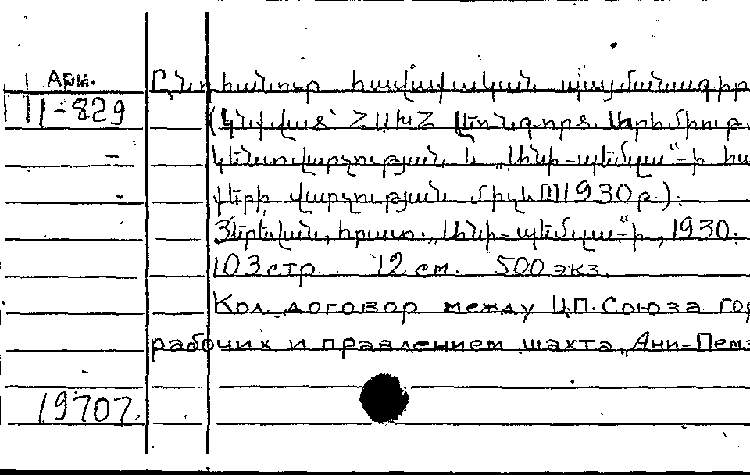 Арм.
11-829
Ընդհանուր հավաքական պայմանագիր
(կնքված ՀՍԽՀ Լեռնագործ. Արհմիութ.
կենտ. վարչության և „Անի-պեմզա“-ի հա
վարչության միջև 1930թ.).
Յերևան, հրատ. „Անի-պեմզա“-ի, 1930.
103 стр 12 см. 500 экз.
Кол. договор между Ц.П. Союза гор
рабочих и правлением шахта „Ани-Пемз
19707.